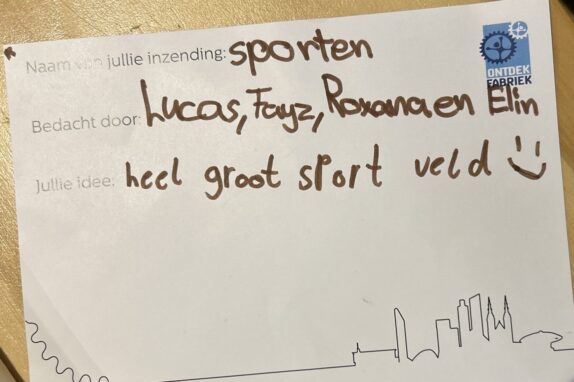 Naam van jullie inzending: sporten
ONTDEK
FABRIEK
Bedacht door: Lucas, Fayz, Roxana en Elin
Jullie idee: heel groot sport veld